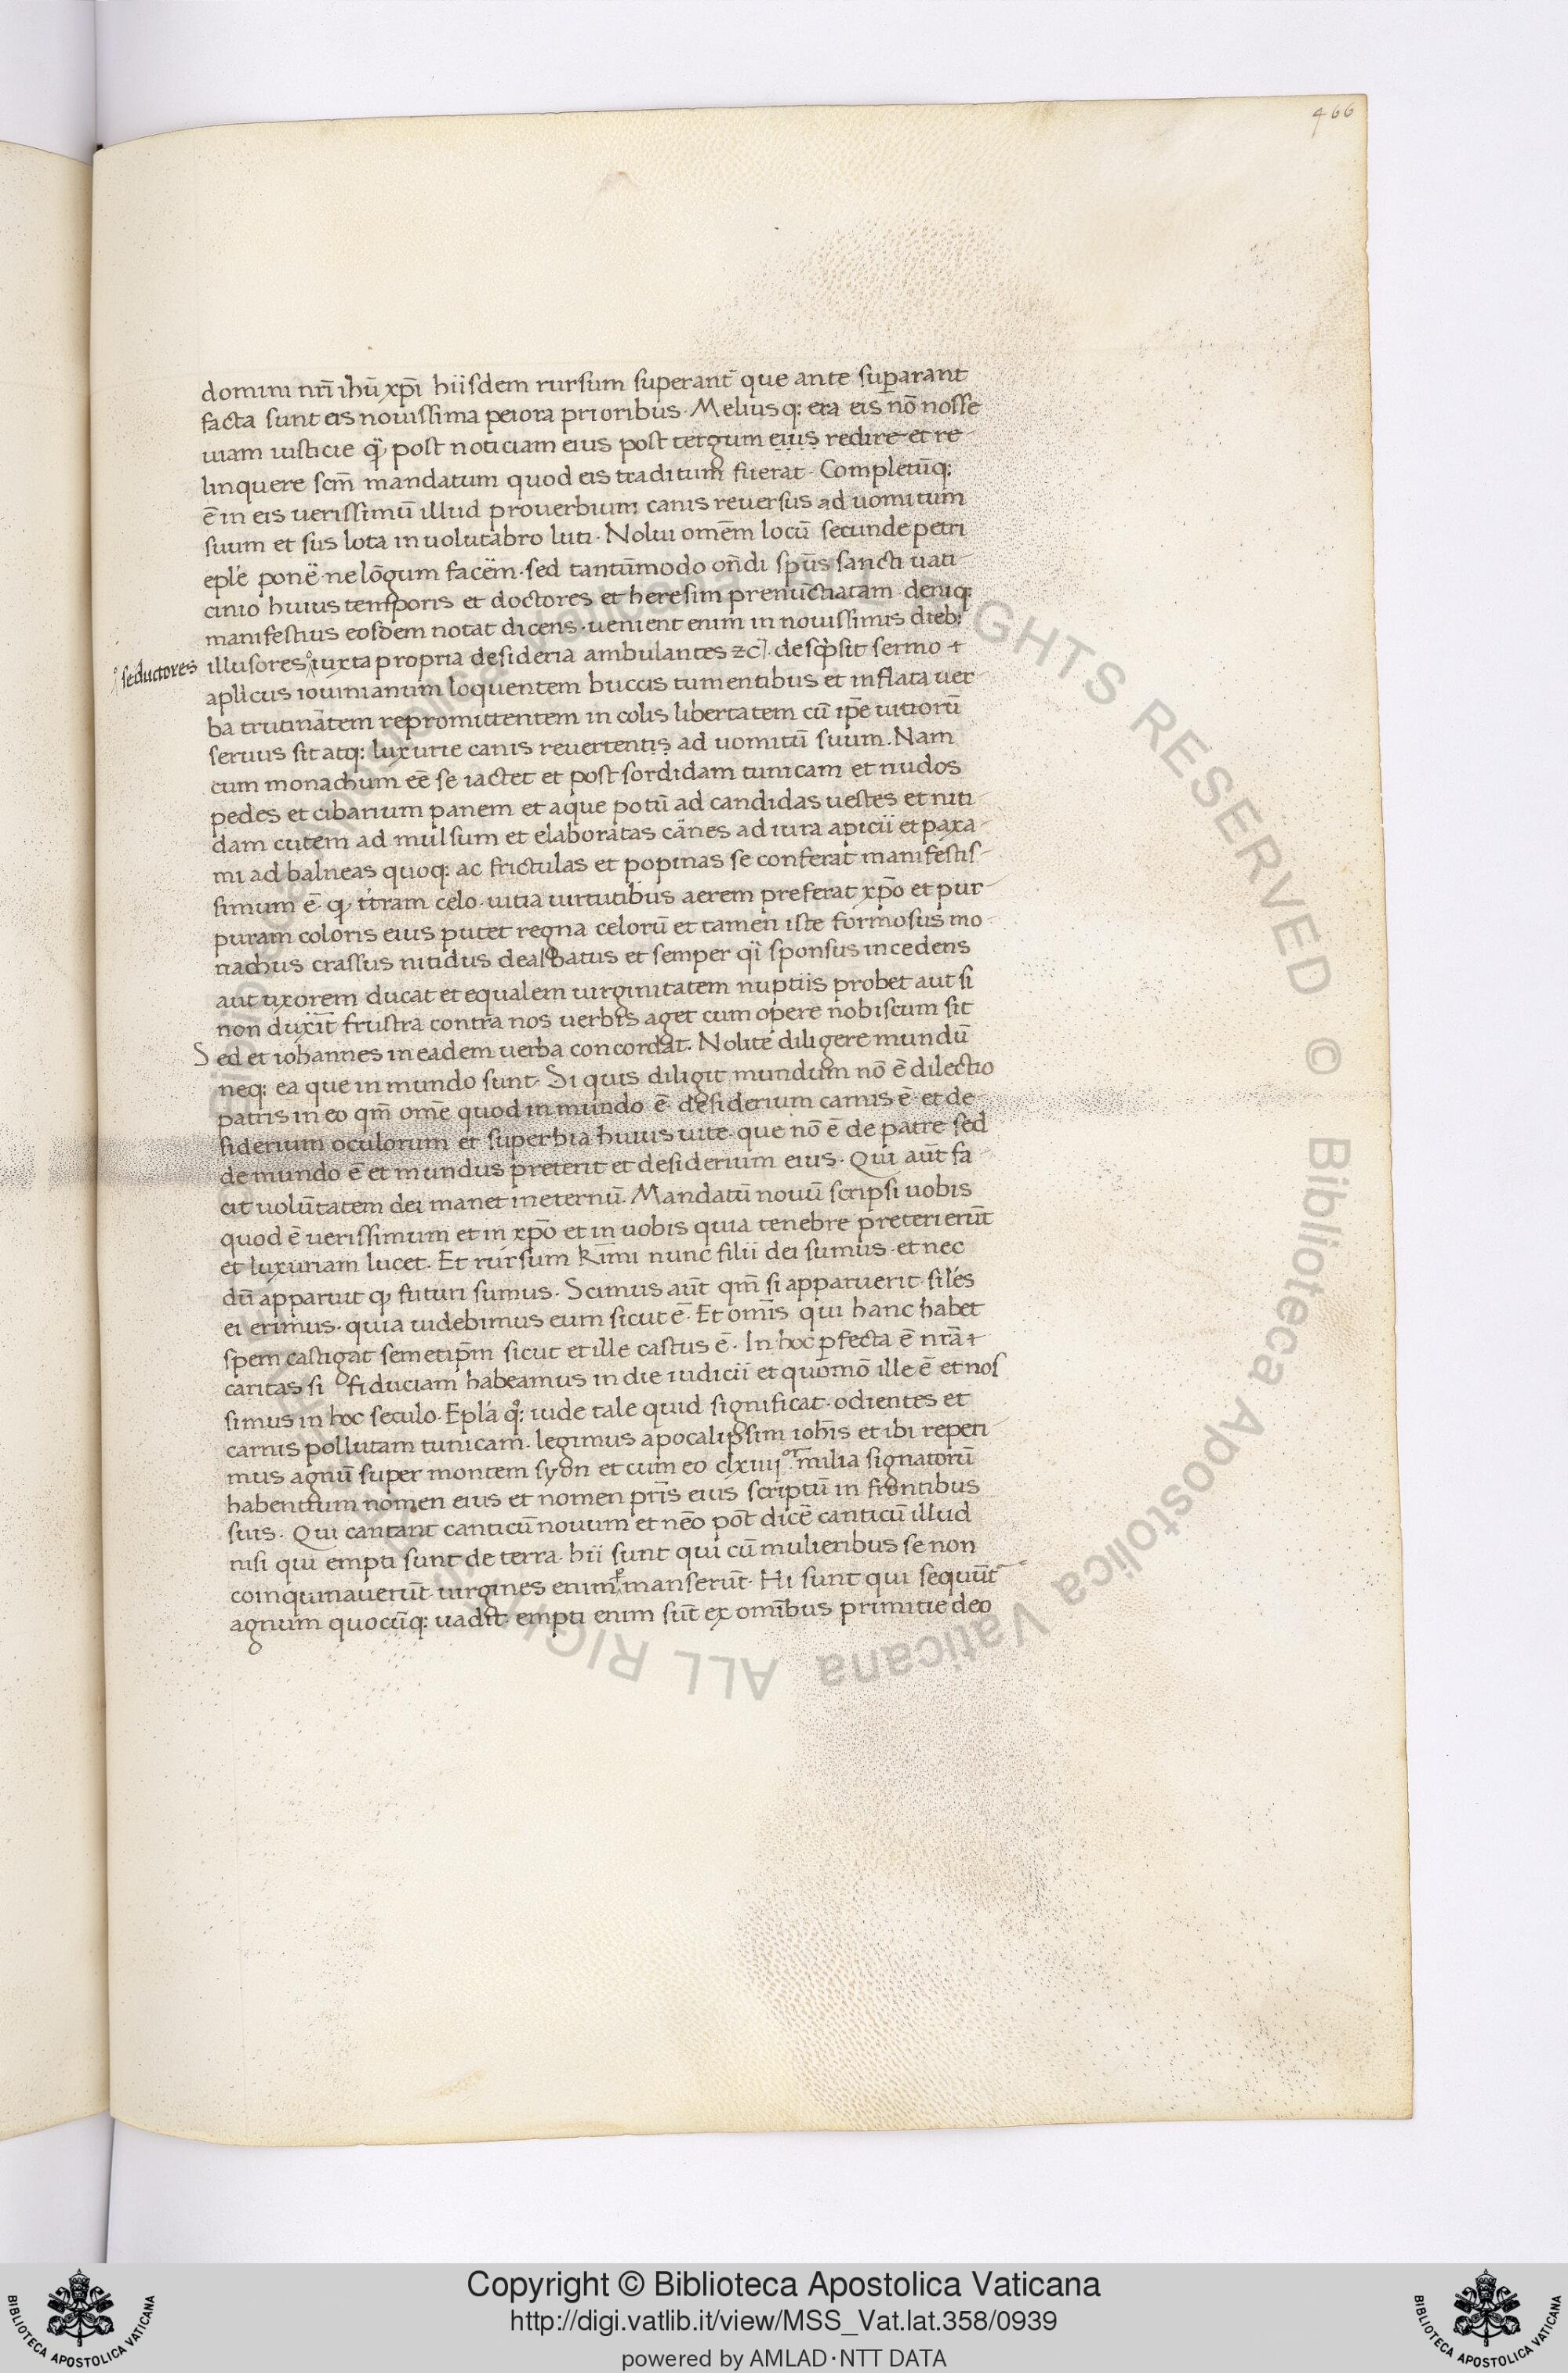 466
domini nrī ihū xp̄i hiisdem rursum superant̄ que ante sup̱arant
facta sunt eis nouissima peiora prioribus · Melius q: era eis nō nosse
uiam iusticie q̄ post noticiam eius post tergum eius redire et re-
linquere scm̄ mandatum quod eis traditum fuerat · Completūq:
ē in eis uerissimū illud prouerbium canis reuersus ad uomitum
suum et sus lota in uolutabro luti · Nolui omēm locū secunde petri
eplé ponē · ne lōgum facēm · sed tantūmodo on̄di spūs sancti uati-
cinio huius temporis et doctores et heresim prenūctiatam · deniq:
manifestius eosdem notat dicens · uenient enim in nouissimis dieb:
seductores
illusores iuxta propria desideria ambulantes zc̄ · descp̀sit sermo
apl̀icus iouinianum loquentem buccis tumentibus et inflata uer-
ba trutinātem repromittentem in celis libertatem cū ip̄e uitiorū
seruus sit atq: luxurie canis reuertentis ad uomitū suum. Nam
cum monachum eē se iactet et post sordidam tunicam et nudos
pedes et cibarium panem et aque potū ad candidas uestes et niti-
dam cutem ad mulsum et elaboratas cārnes ad iura apicii et paxa-
mi ad balneas quoq: ac frictulas et popinas se conferat manifestis-
simum ē · q̨ t́ram celo · uitia uirtutibus aerem preferat xp̄o et pur-
puram coloris eius putet regna celorū et tamen iste formosus mo-
nachus crassus nitidus dealbatus et semper q̄i sponsus incedens
aut uxorem ducat et equalem uirginitatem nuptiis probet aut si
non duxit frustra contra nos uerbis aget cum opere nobiscum sit
Sed et iohannes in eadem uerba concordat. Nolite diligere mundū
neq: ea que in mundo sunt · Si quis diligit mundum nō ē dilectio
patris in eo qm̄ omē quod in mundo ē · desiderium carnis ē · et de-
siderium oculorum et superbia huius uite · que nō ē de patre sed
de mundo ē et mundus preterit et desiderium eius · Qui aūt fa-
cit volūtatem dei manet in eternū · Mandatū nouū scripsi uobis
quod ē uerissimum et in xp̄o et in uobis quia tenebre preterierūt
et lux iam lucet · Et rursum kīmi nunc filii dei sumus · et nec
dū apparuit q̨ futuri sumus · Scimus aūt qm̄ si apparuerit · silés
ei erimus · quia uidebimus eum sicut ē · Et omīs qui hanc habet
spem castigat semetip̄m sicut et ille castus ē · In hoc p̱fecta ē nrā
caritas si fiduciam habeamus in die iudicii et quōmō ille ē et nos
simus in hoc seculo · Eplá q: iude tale quid significat · odientes et
carnis pollutam tunicam · legimus apocalipsim ioh̄is et ibi reperi-
mus agnū super montem syon et cum eo clxiiij or milia signatorū
habentium nomen eius et nomen pr̄is eius scriptū in frontibus
suis · Qui cantant canticū nouum et nēo pōt dicē canticū illud
nisi qui empti sunt de terra · hii sunt qui cū mulieribus se non
coinquinauerūt · uirgines enim p̱manserūt · Hi sunt qui sequūt̄
agnum quocūq: uadit · empti enim sūt ex omībus primitie deo
ALL RIGHTS RESERVED © Biblioteca Apostolica Vaticana
BIBLIOTECA APOSTOLICA VATICANA
Copyright © Biblioteca Apostolica Vaticana
http://digi.vatlib.it/view/MSS_Vat.lat.358/0939
powered by AMLAD·NTT DATA
BIBLIOTECA APOSTOLICA VATICANA